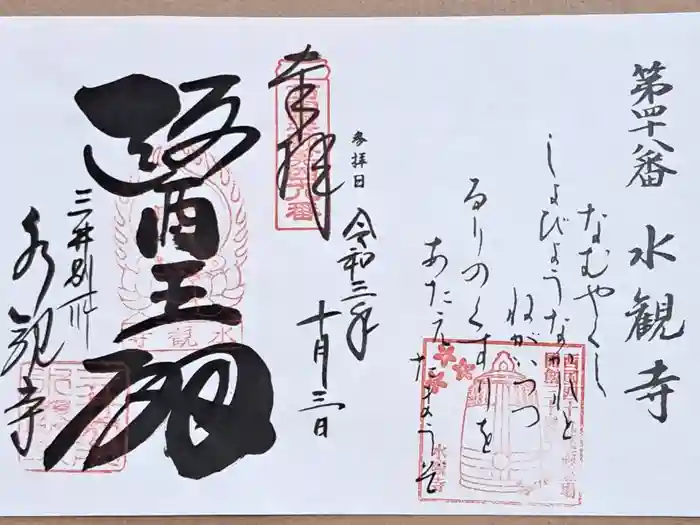 第四十八番 水観寺
なむやくし
しょびょうなかれと
ねがいつつ
るりのくすりを
あたえたまうぞ
奉拝
参拝日
令和三年
十月三日
医王殿
三井別所
水観寺
水観寺
水観寺